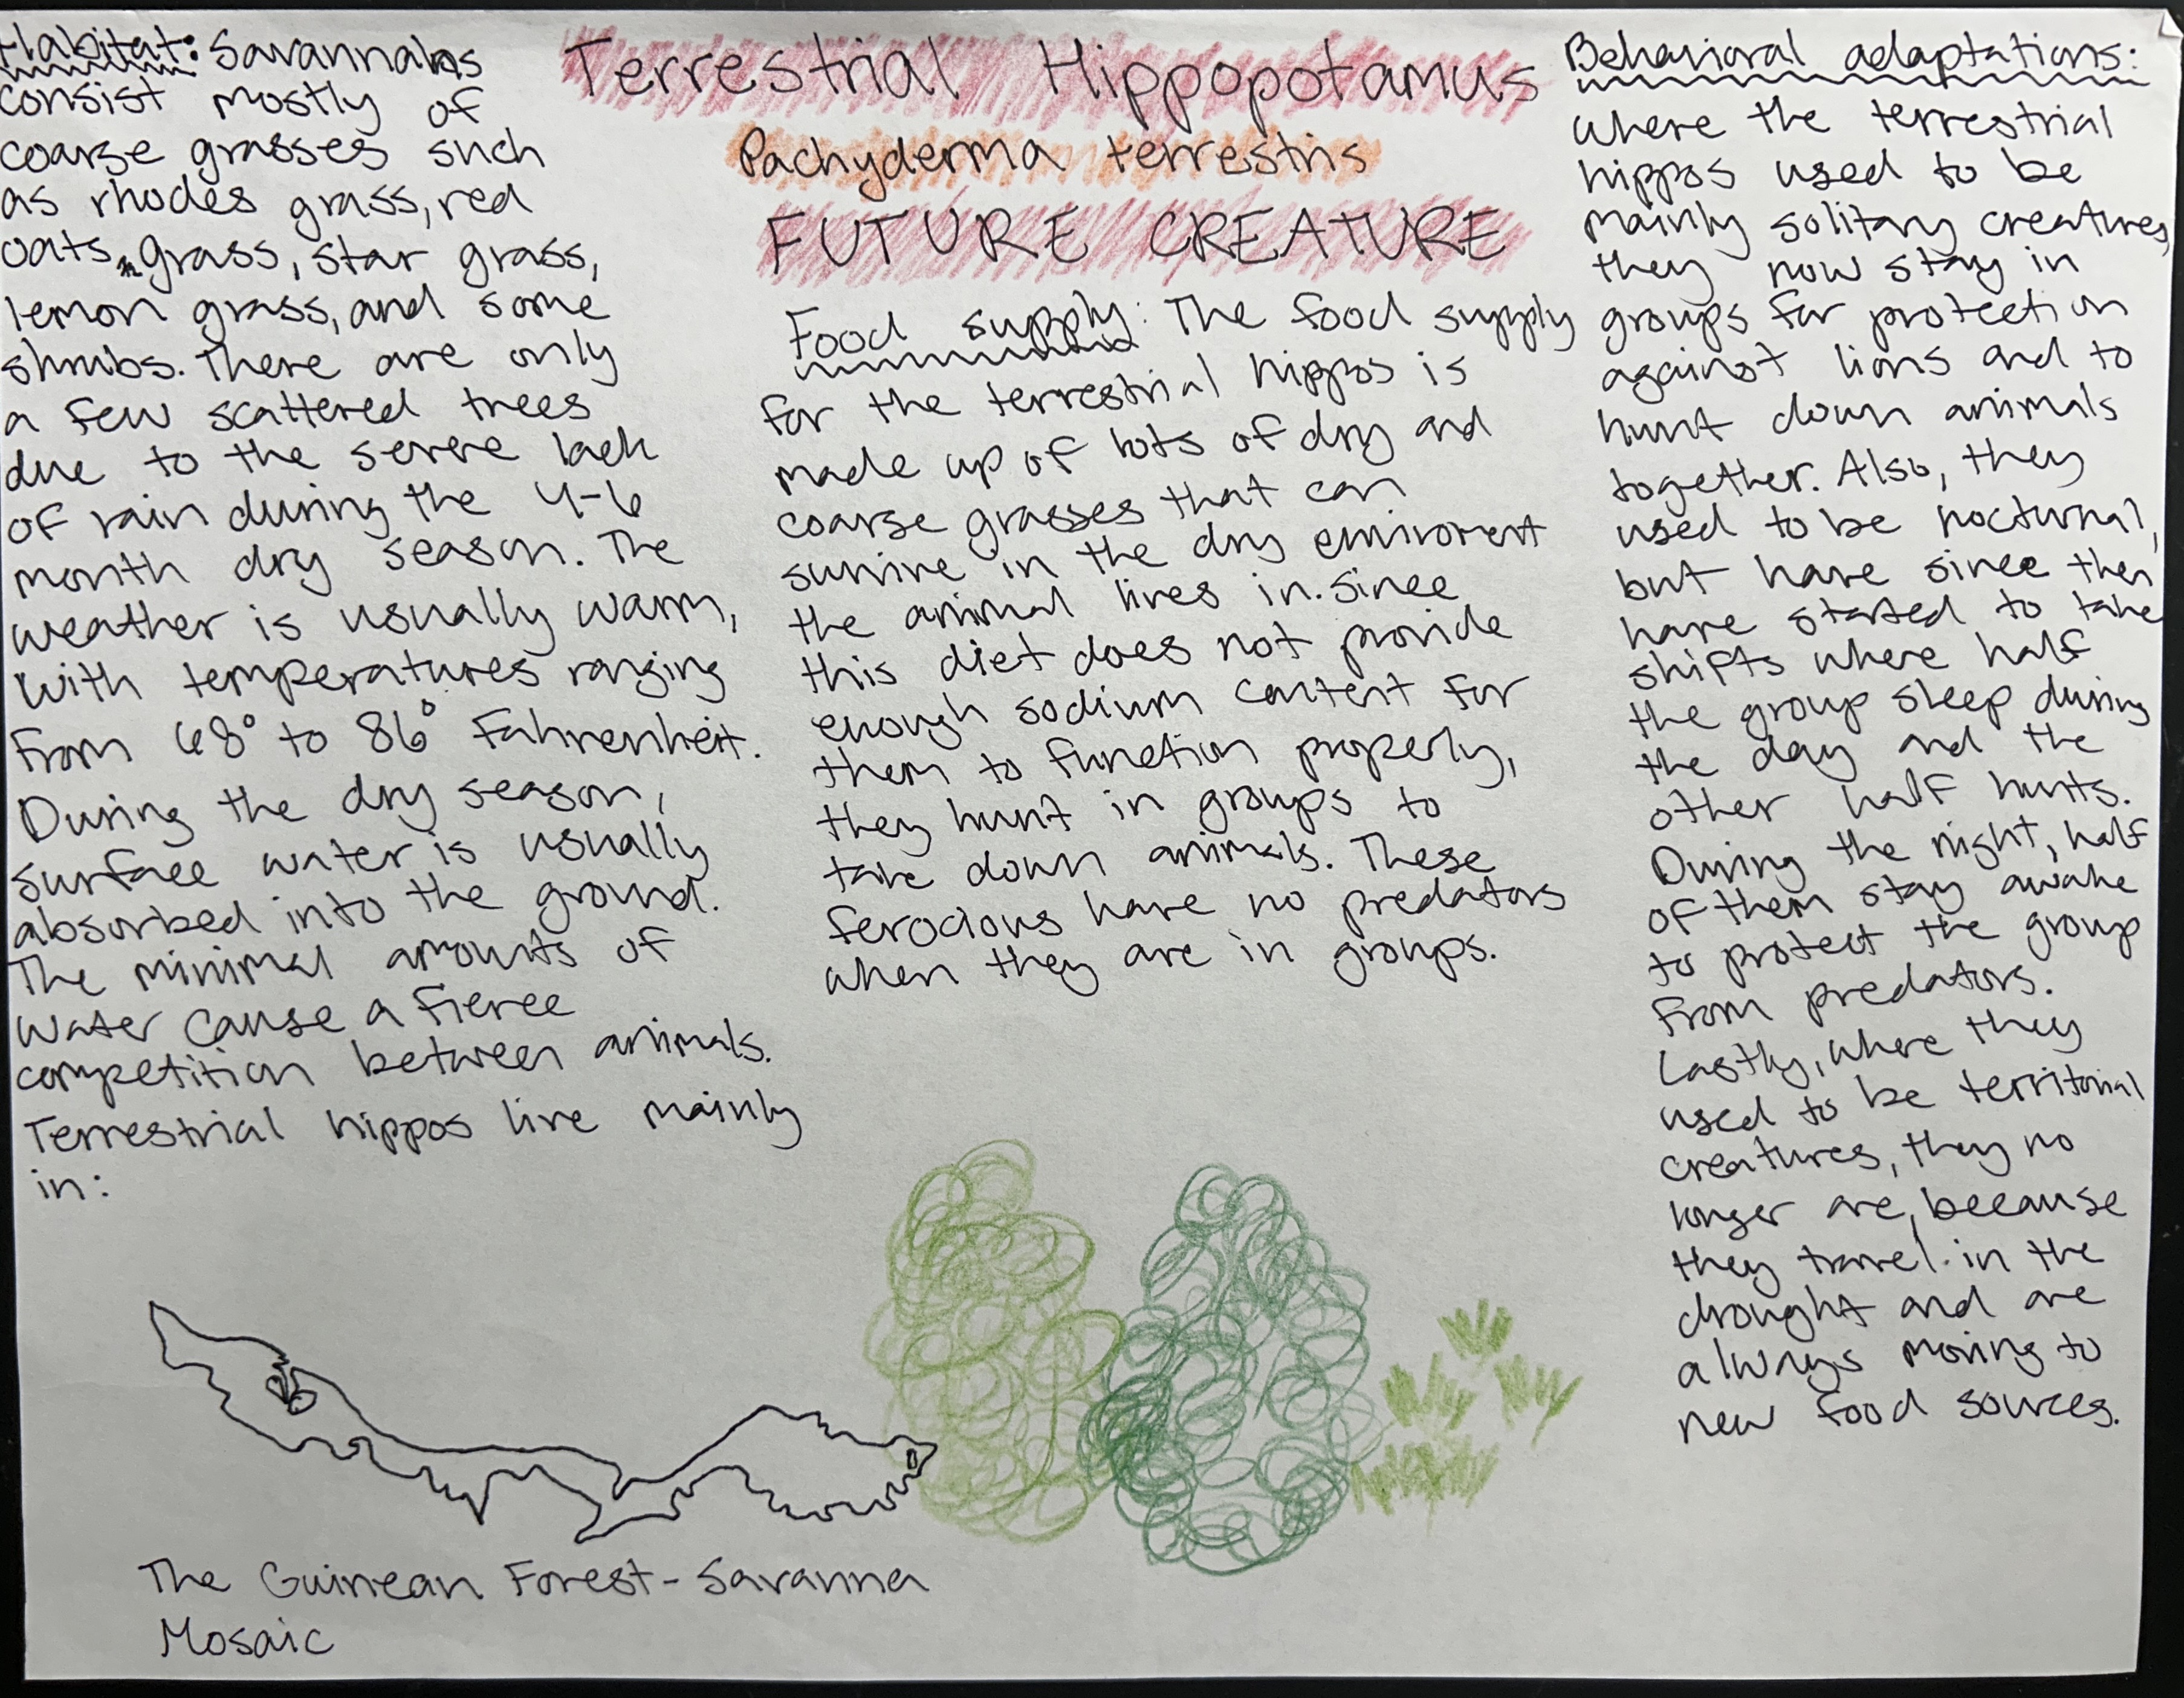 Terrestrial Hippopotamus
Pachyderma terrestris
FUTURE CREATURE
Habitat: Savannahs
consist mostly of
coarse grasses such
as rhodes grass, red
oats grass, star grass,
lemon grass, and some
shrubs. There are only
a few scattered trees
due to the severe lack
of rain during the 4-6
month dry season. The
weather is usually warm,
with temperatures ranging
from 68° to 86° Fahrenheit.
During the dry season,
surface water is usually
absorbed into the ground.
The minimal amounts of
water cause a fierce
competition between animals.
Terrestrial hippos live mainly
in:
The Guinean Forest-Savanna
Mosaic
Food supply: The food supply
for the terrestrial hippos is
made up of lots of dry and
coarse grasses that can
survive in the dry enviroment
the animal lives in. Since
this diet does not provide
enough sodium content for
them to function properly,
they hunt in groups to
take down animals. These
ferocious have no predators
when they are in groups.
Behavioral adaptations:
where the terrestrial
hippos used to be
mainly solitary creatures,
they now stay in
groups for protection
against lions and to
hunt down animals
together. Also, they
used to be nocturnal,
but have since then
have started to take
shifts where half
the group sleep during
the day and the
other half hunts.
During the night, half
of them stay awake
to protect the group
from predators.
Lastly, where they
used to be territorial
creatures, they no
longer are, because
they travel in the
drought and are
always moving to
new food sources.